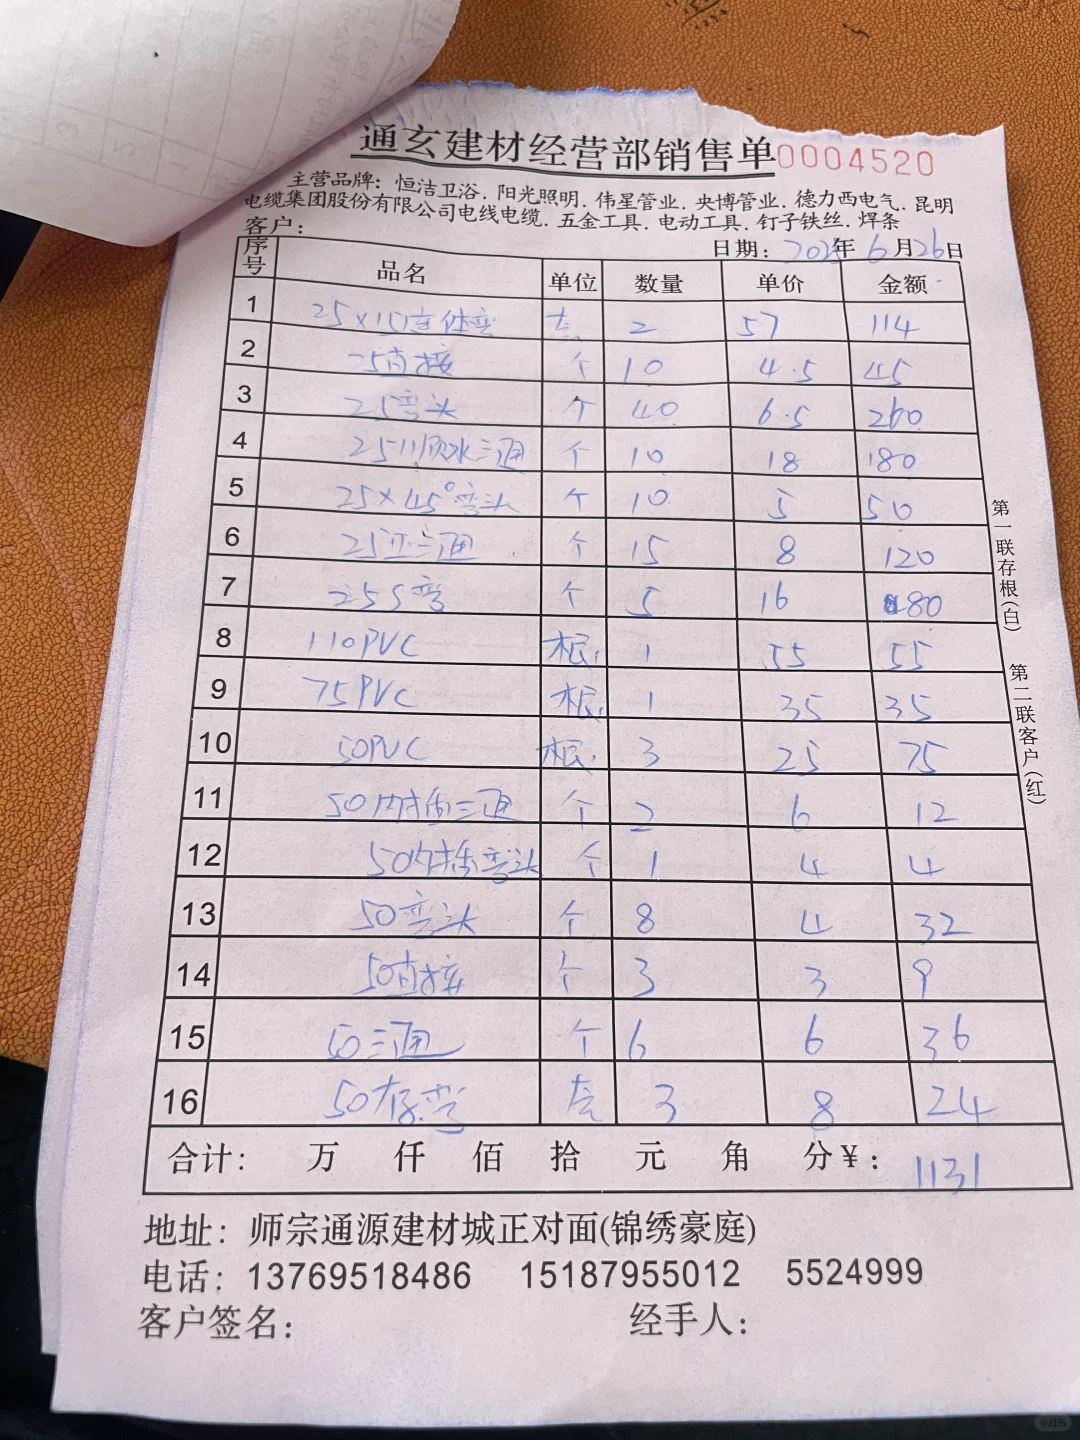 通玄建材经营部销售单 0004520
主营品牌：恒洁卫浴.阳光照明.伟星管业.央博管业.德力西电气.昆明
电缆集团股份有限公司电线电缆.五金工具.电动工具.钉子铁丝.焊条
客户：
日期：2025年6月26日
序号 品名 单位 数量 单价 金额
1 25×15连体弯 套 2 57 114
2 25直接 个 10 4.5 45
3 25弯头 个 40 6.5 260
4 25顺水三通 个 10 18 180
5 25×45°弯头 个 10 5 50
6 25正三通 个 15 8 120
7 25S弯 个 5 16 80
8 110PVC 根 1 55 55
9 75PVC 根 1 35 35
10 50PVC 根 3 25 75
11 50内插三通 个 2 6 12
12 50内插弯头 个 1 4 4
13 50弯头 个 8 4 32
14 50直接 个 3 3 9
15 50三通 个 6 6 36
16 50存弯 套 3 8 24
合计： 万 仟 佰 拾 元 角 分¥：1131
地址：师宗通源建材城正对面(锦绣豪庭)
电话：13769518486 15187955012 5524999
客户签名： 经手人：
第一联存根(白)
第二联客户(红)